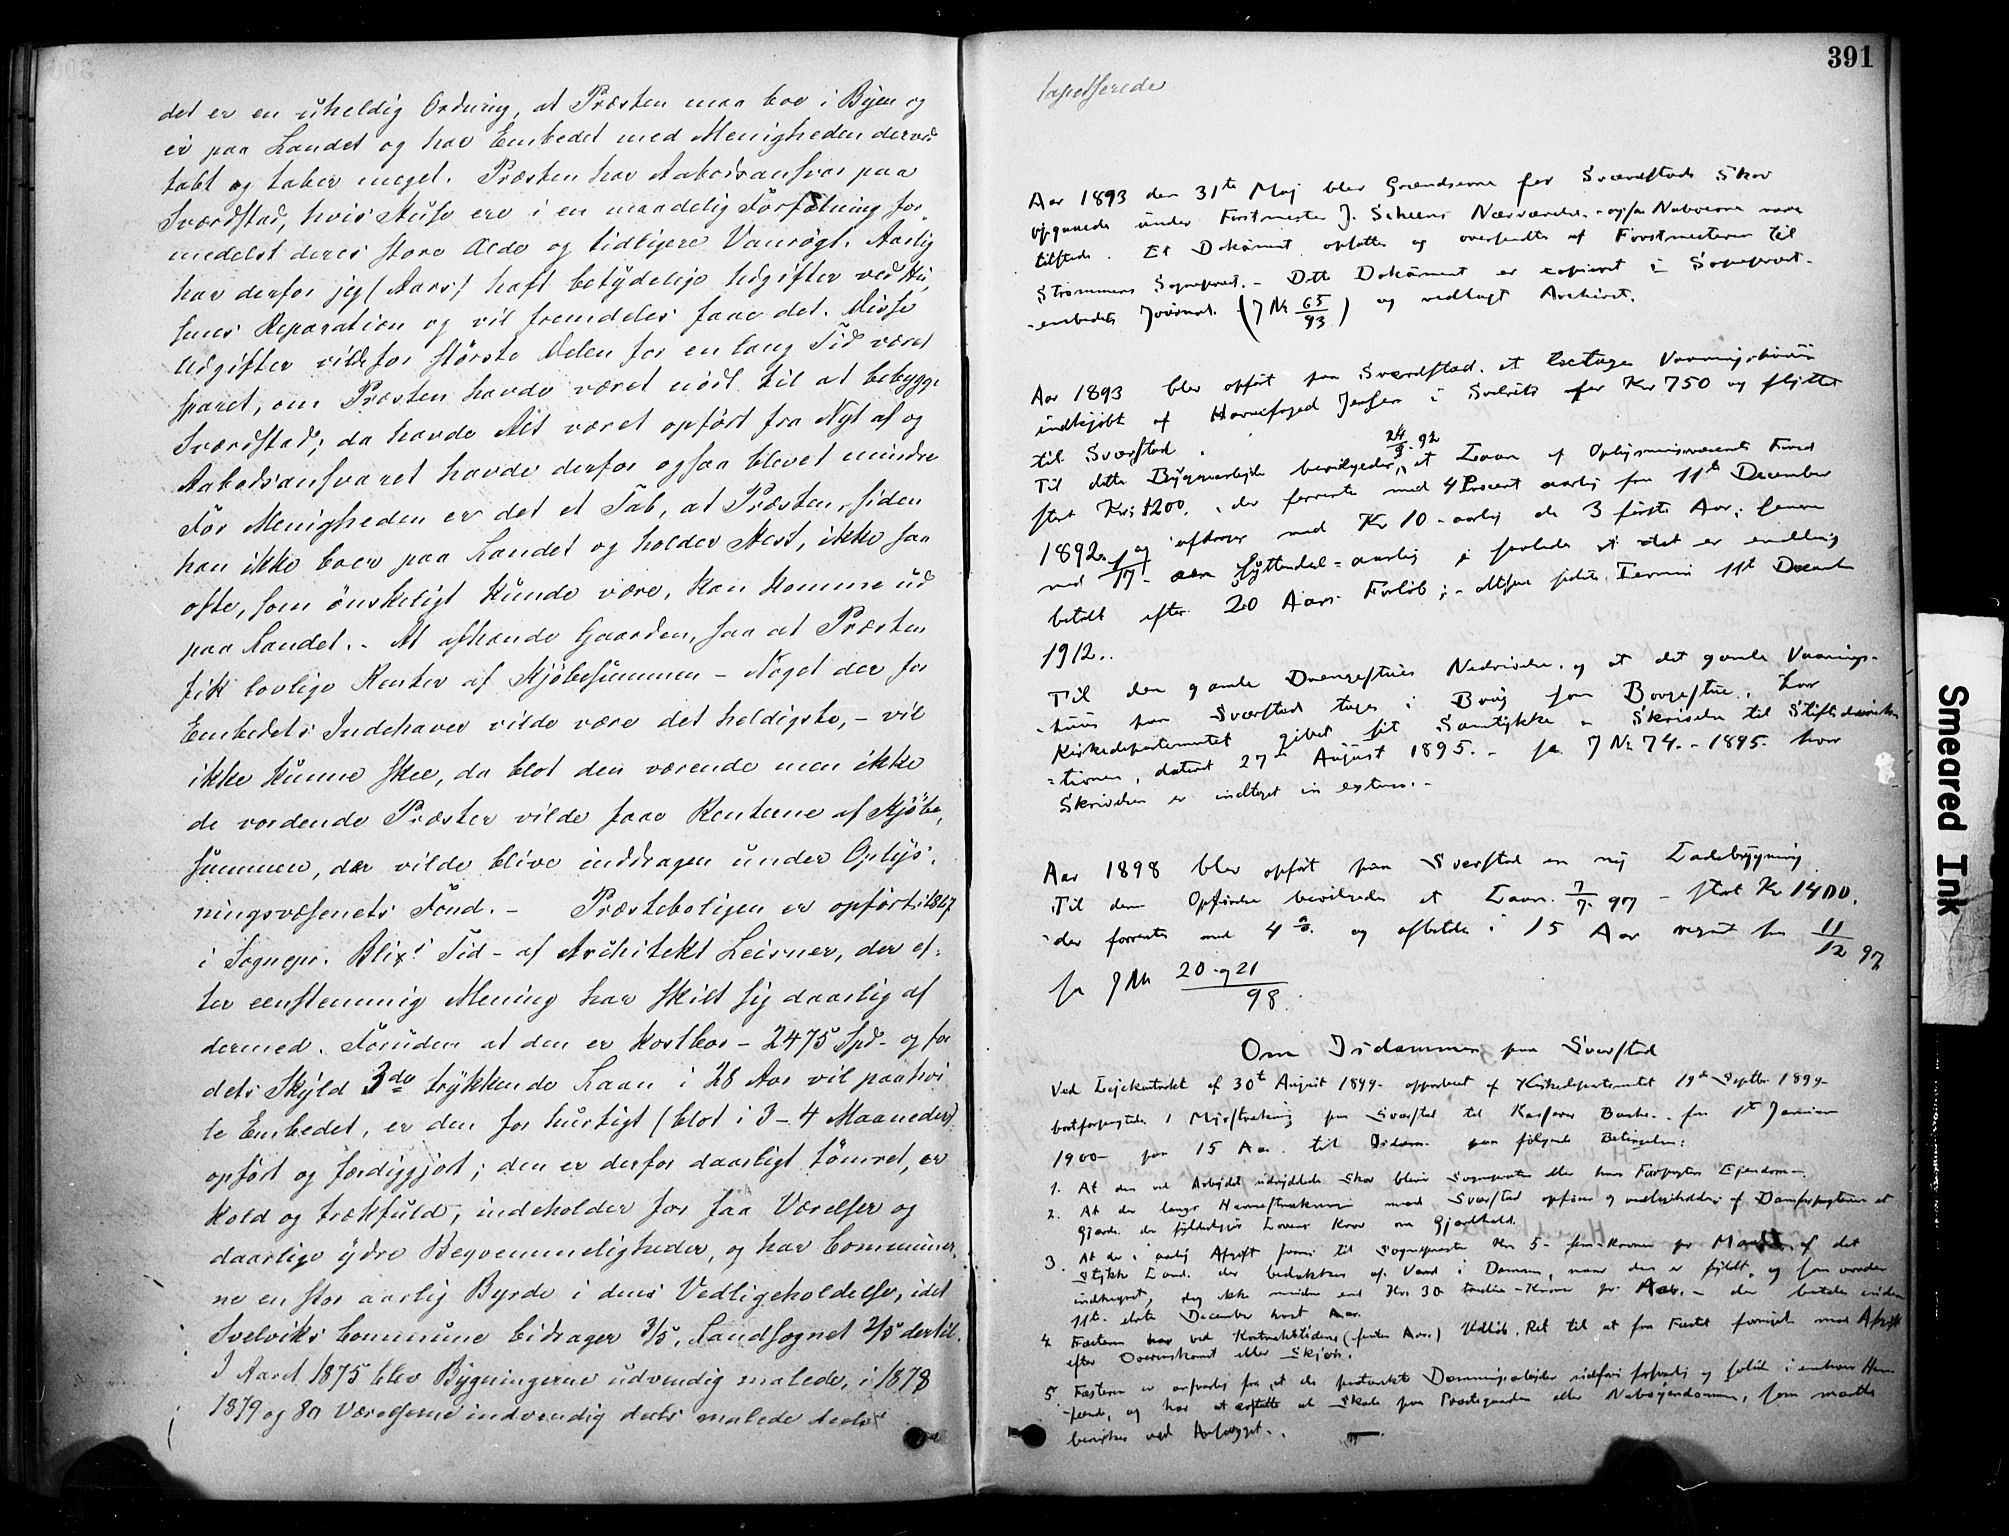 det er en uheldig Ordning, at Præsten maa boe i Byen og
ei paa Landet og har Embedet med Menigheden derved
tabt og taber meget. Præsten har Aabodsansvar paa
Sværdstad, hvis Huse ere i en maadelig Forfatning for-
medelst deres store Ælde og tidligere Vanrögt. Aarlig
har derfor jeg (Aars) haft betydelige Udgifter ved Hu-
senes Reparation og vil fremdeles faae det. Disse
Udgifter vilde for störste Delen for en lang Tid været
sparet, om Præsten havde været nödt til at bebygge
Sværdstad; da havde Alt været opfört fra Nyt af og
Aabodsansvaret havde derfor ogsaa blevet mindre
For Menigheden er det et Tab, at Præsten, siden
han ikke boer paa Landet og holder Hest, ikke saa
ofte, som önskeligt kunde være, kan komme ud
paa Landet. - At afhænde Gaarden, saa at Præsten
fik lovlige Renter af Kjöbesummen - Noget der for
Embedets Indehaver vilde være det heldigste, - vil
ikke kunne skee, da blot den værende men ikke
de vordende Præster vilde faae Renterne af Kjöbe-
summen, der vilde blive inddragen under Oplys-
ningsvæsenets Fond. - Præsteboligen er opfört i 1867
i Sognepr. Blix' Tid - af Architekt Leisner, der ef-
ter eenstemmig Mening har skilt sig daarlig af
dermed. Foruden at den er kostbar - 2475 Spd - og for
dets Skyld 3de trykkende Laan i 28 Aar vil paahvi-
le Embedet, er den for hurtigt (blot i 3-4 Maaneder)
opfört og færdiggjort; den er derfor daarligt tömret, er
kold og trækfuld, indeholder for faa Værelser og
daarlige ydre Beqvemmeligheder, og har Commune-
ne en stor aarlig Byrde i dens Vedligeholdelse, idet
Svelviks Commune bidrager 3/5, Landsognet 2/5 dertil.
I Aaret 1875 blev Bygningerne udvendig malede, i 1878
1879 og 80 Værelserne indvendig deels malede deels
391
tapetserede
Aar 1893 den 31te Maj blev Grændserne for Sværdstads Skov
opgaaede under Forstmester J. Scheens Nærværelse - ogsaa Naboerne vare
tilstede. Et Dokument opsattes og oversendtes af Forstmesteren til
Strømmens Sognepræst. - Dette Dokument er copieret i Sognepræst-
-embedets Journal (J No 65/93) og vedlagt Archivet.
Aar 1893 blev opført paa Sværdstad et Vaaningshuus
indkjøbt af Havnefoged Jensen i Svelvik for Kr 750 og flyttet
til Sværstad.
Til dette Byggearbejde bevilgedes 24/9 92 et Laan af Oplysningsvæsenets Fond
stort Kr. 1200, der forrentes med 4 Procent aarlig fra 11te December
1892 og afdrages med Kr 10 - aarlig de 3 første Aar; senere
med 1/17 - Syttendel - aarlig saaledes at det er endelig
betalt efter 20 Aars Forløb; - Altsaa sidste Termin 11te December
1912..
Til den gamle Drengestues Nedrivelse og at det gamle Vaanings-
-huus paa Sværstad tages i Brug som Borgestue, har
Kirkedepartementet givet sit Samtykke i Skrivelse til Stiftsdirek-
-tionen, dateret 27de August 1895. - se J No 74 - 1895 hvor
Skrivelsen er indtaget in extenso. -
Aar 1898 blev opført paa Sværstad en ny Ladebygning
Til dens Opførelse bevilgedes et Laan 7/7 97 - stort Kr 1400.
der forrentes med 4 % og afbetales i 15 Aar regnet fra 11/12 97
se J No 20 og 21/98.
Om Isdammen paa Sværstad
Ved Lejekontrakt af 30te August 1899 - approberet af Kirkedepartementet 19de Septbr 1899 -
bortforpagtedes 1 paa Sværstad til Bache fra 1te Januar
1900 - paa 15 Aar til Isdam paa følgende Betingelser:
1. At den ved Arbejdet udryddede Skov bliver Sognepræsten eller hans Forpagters Ejendom -
2. At der langs med Sværstad opføres og vedligeholdes af Damforpagteren et
Gjærde der fyldestgjør Lovens Krav om Gjerdehold.
3. At der i aarlig Afgift svares til Sognepræsten Kr 5 - fem Kroner pr Maal af det
Stykke Land der bedækkes af Vand i Dammen, naar den er fyldt, og som vorder
indhegnet, dog ikke mindre end Kr 30 tredive - Kroner pr Aar. - der betales inden
11te ellevte December hvert Aar.
4. Fæsteren har ved Kontrakttidens (femten Aars) Udløb Ret til at faa Fæstet fornyet mod Afgift
efter Overenskomst eller Skjøn.
5. Fæsteren er ansvarlig for, at de Dæmningsarbejder udføres forsvarlig og solid i enhver Hen-
-seende, og har at erstatte al Skade paa Præstegaarden eller Naboejendomme, som maatte
bevirkes ved Anlægget.
Smeared Ink